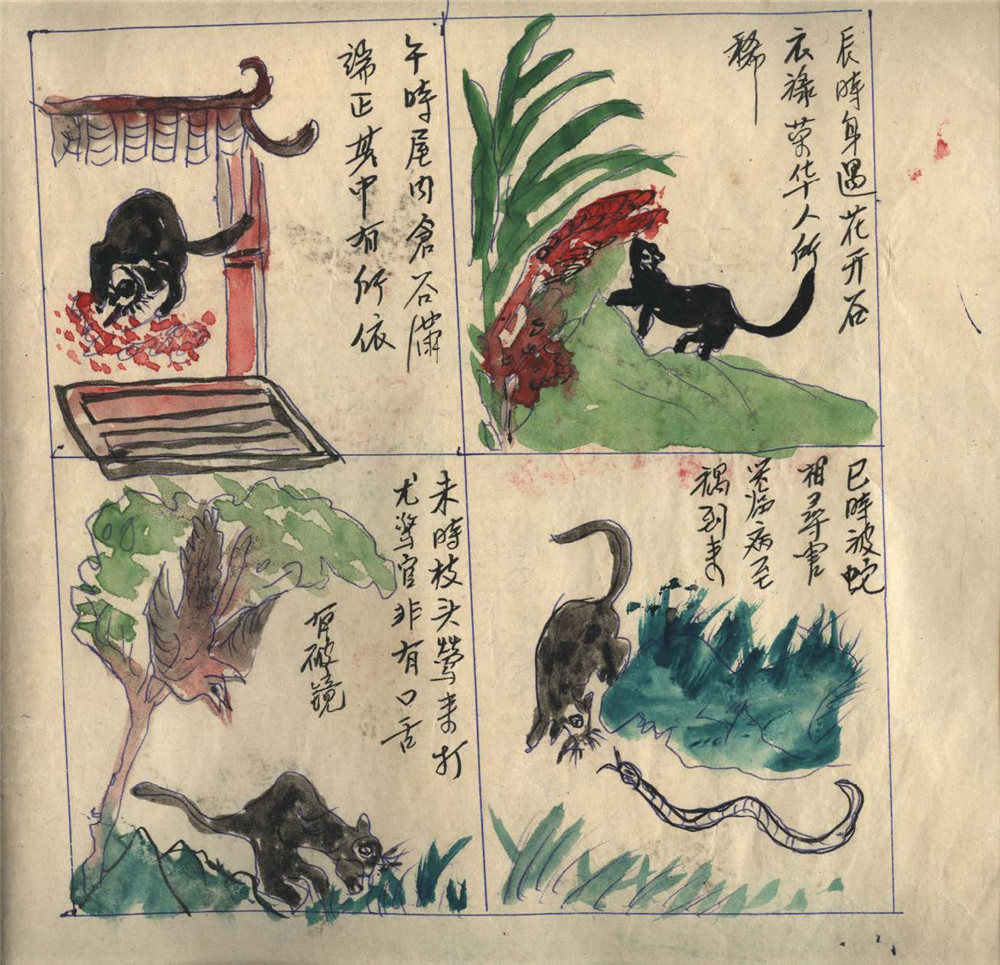 辰時身遇花开石
衣祿荣华人所
稀
巳時波蛇
相尋害
临病至
禍到来
午時屋内倉谷滿
端正其中有所依
未時枝头鶯来打
尤驚官非有口舌
有破鏡